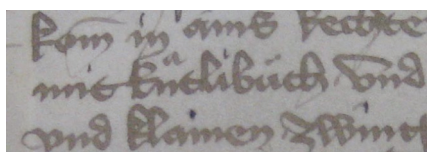 kom̄ in ains kechte
mit kůtlibůch vnd
vnd klainen zwint